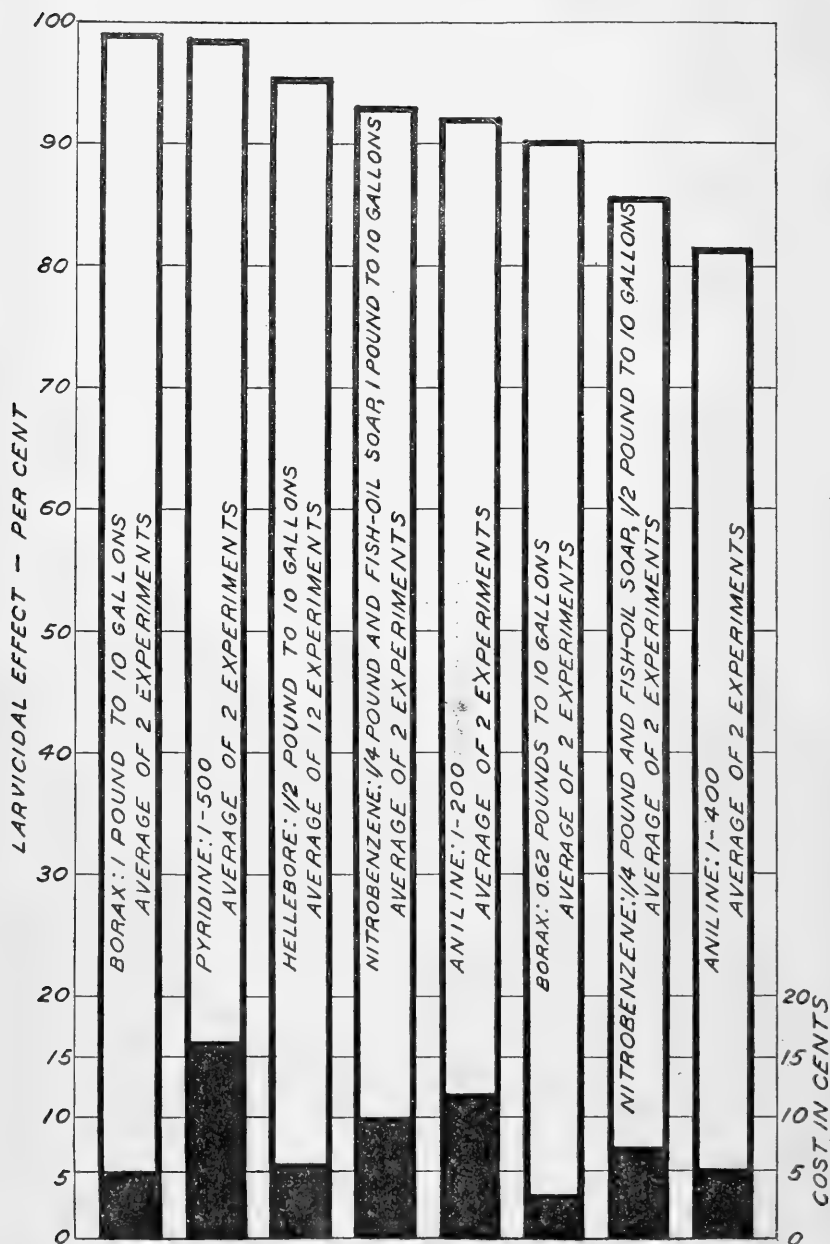 LARVICIDAL EFFECT — PER CENT
100
90
80
70
60
50
40
30
20
15
10
5
0
BORAX: 1 POUND TO 10 GALLONS
AVERAGE OF 2 EXPERIMENTS
PYRIDINE: 1-500
AVERAGE OF 2 EXPERIMENTS
HELLEBORE: 1/2 POUND TO 10 GALLONS
AVERAGE OF 12 EXPERIMENTS
NITROBENZENE: 1/4 POUND AND FISH-OIL SOAP, 1 POUND TO 10 GALLONS
AVERAGE OF 2 EXPERIMENTS
ANILINE: 1-200
AVERAGE OF 2 EXPERIMENTS
BORAX: 0.62 POUNDS TO 10 GALLONS
AVERAGE OF 2 EXPERIMENTS
NITROBENZENE: 1/4 POUND AND FISH-OIL SOAP, 1/2 POUND TO 10 GALLONS
AVERAGE OF 2 EXPERIMENTS
ANILINE: 1-400
AVERAGE OF 2 EXPERIMENTS
20
15
10
5
0
COST IN CENTS